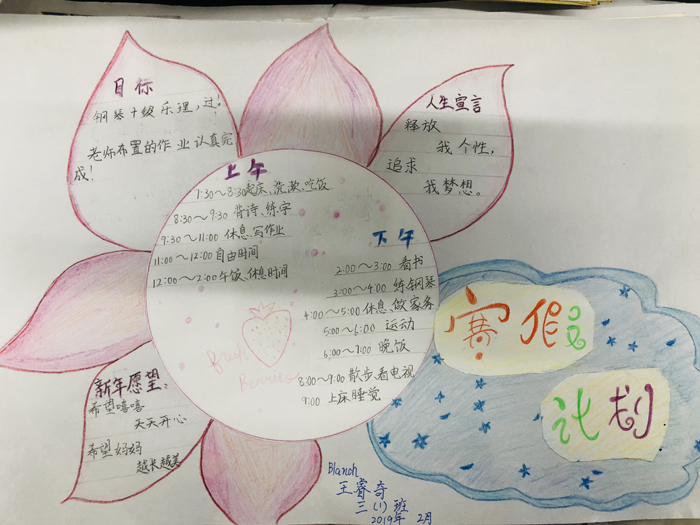 目标
钢琴十级乐理，过！
老师布置的作业认真完
成！
人生宣言
释放
我个性，
追求
我梦想。
上午
7:30～8:30起床、洗漱、吃饭
8:30～9:30 背诗、练字
9:30～11:00 休息、写作业
11:00～12:00 自由时间
12:00～2:00午饭、休息时间
下午
2:00～3:00 看书
3:00～4:00 练钢琴
4:00～5:00 休息、做家务
5:00～6:00 运动
6:00～7:00 晚饭
8:00～9:00 散步、看电视
9:00 上床睡觉
Berries
新年愿望：
希望嘻嘻
天天开心
希望妈妈
越长越美
寒假
计划
Blanch
王睿奇
三（1）班
2019年 2月